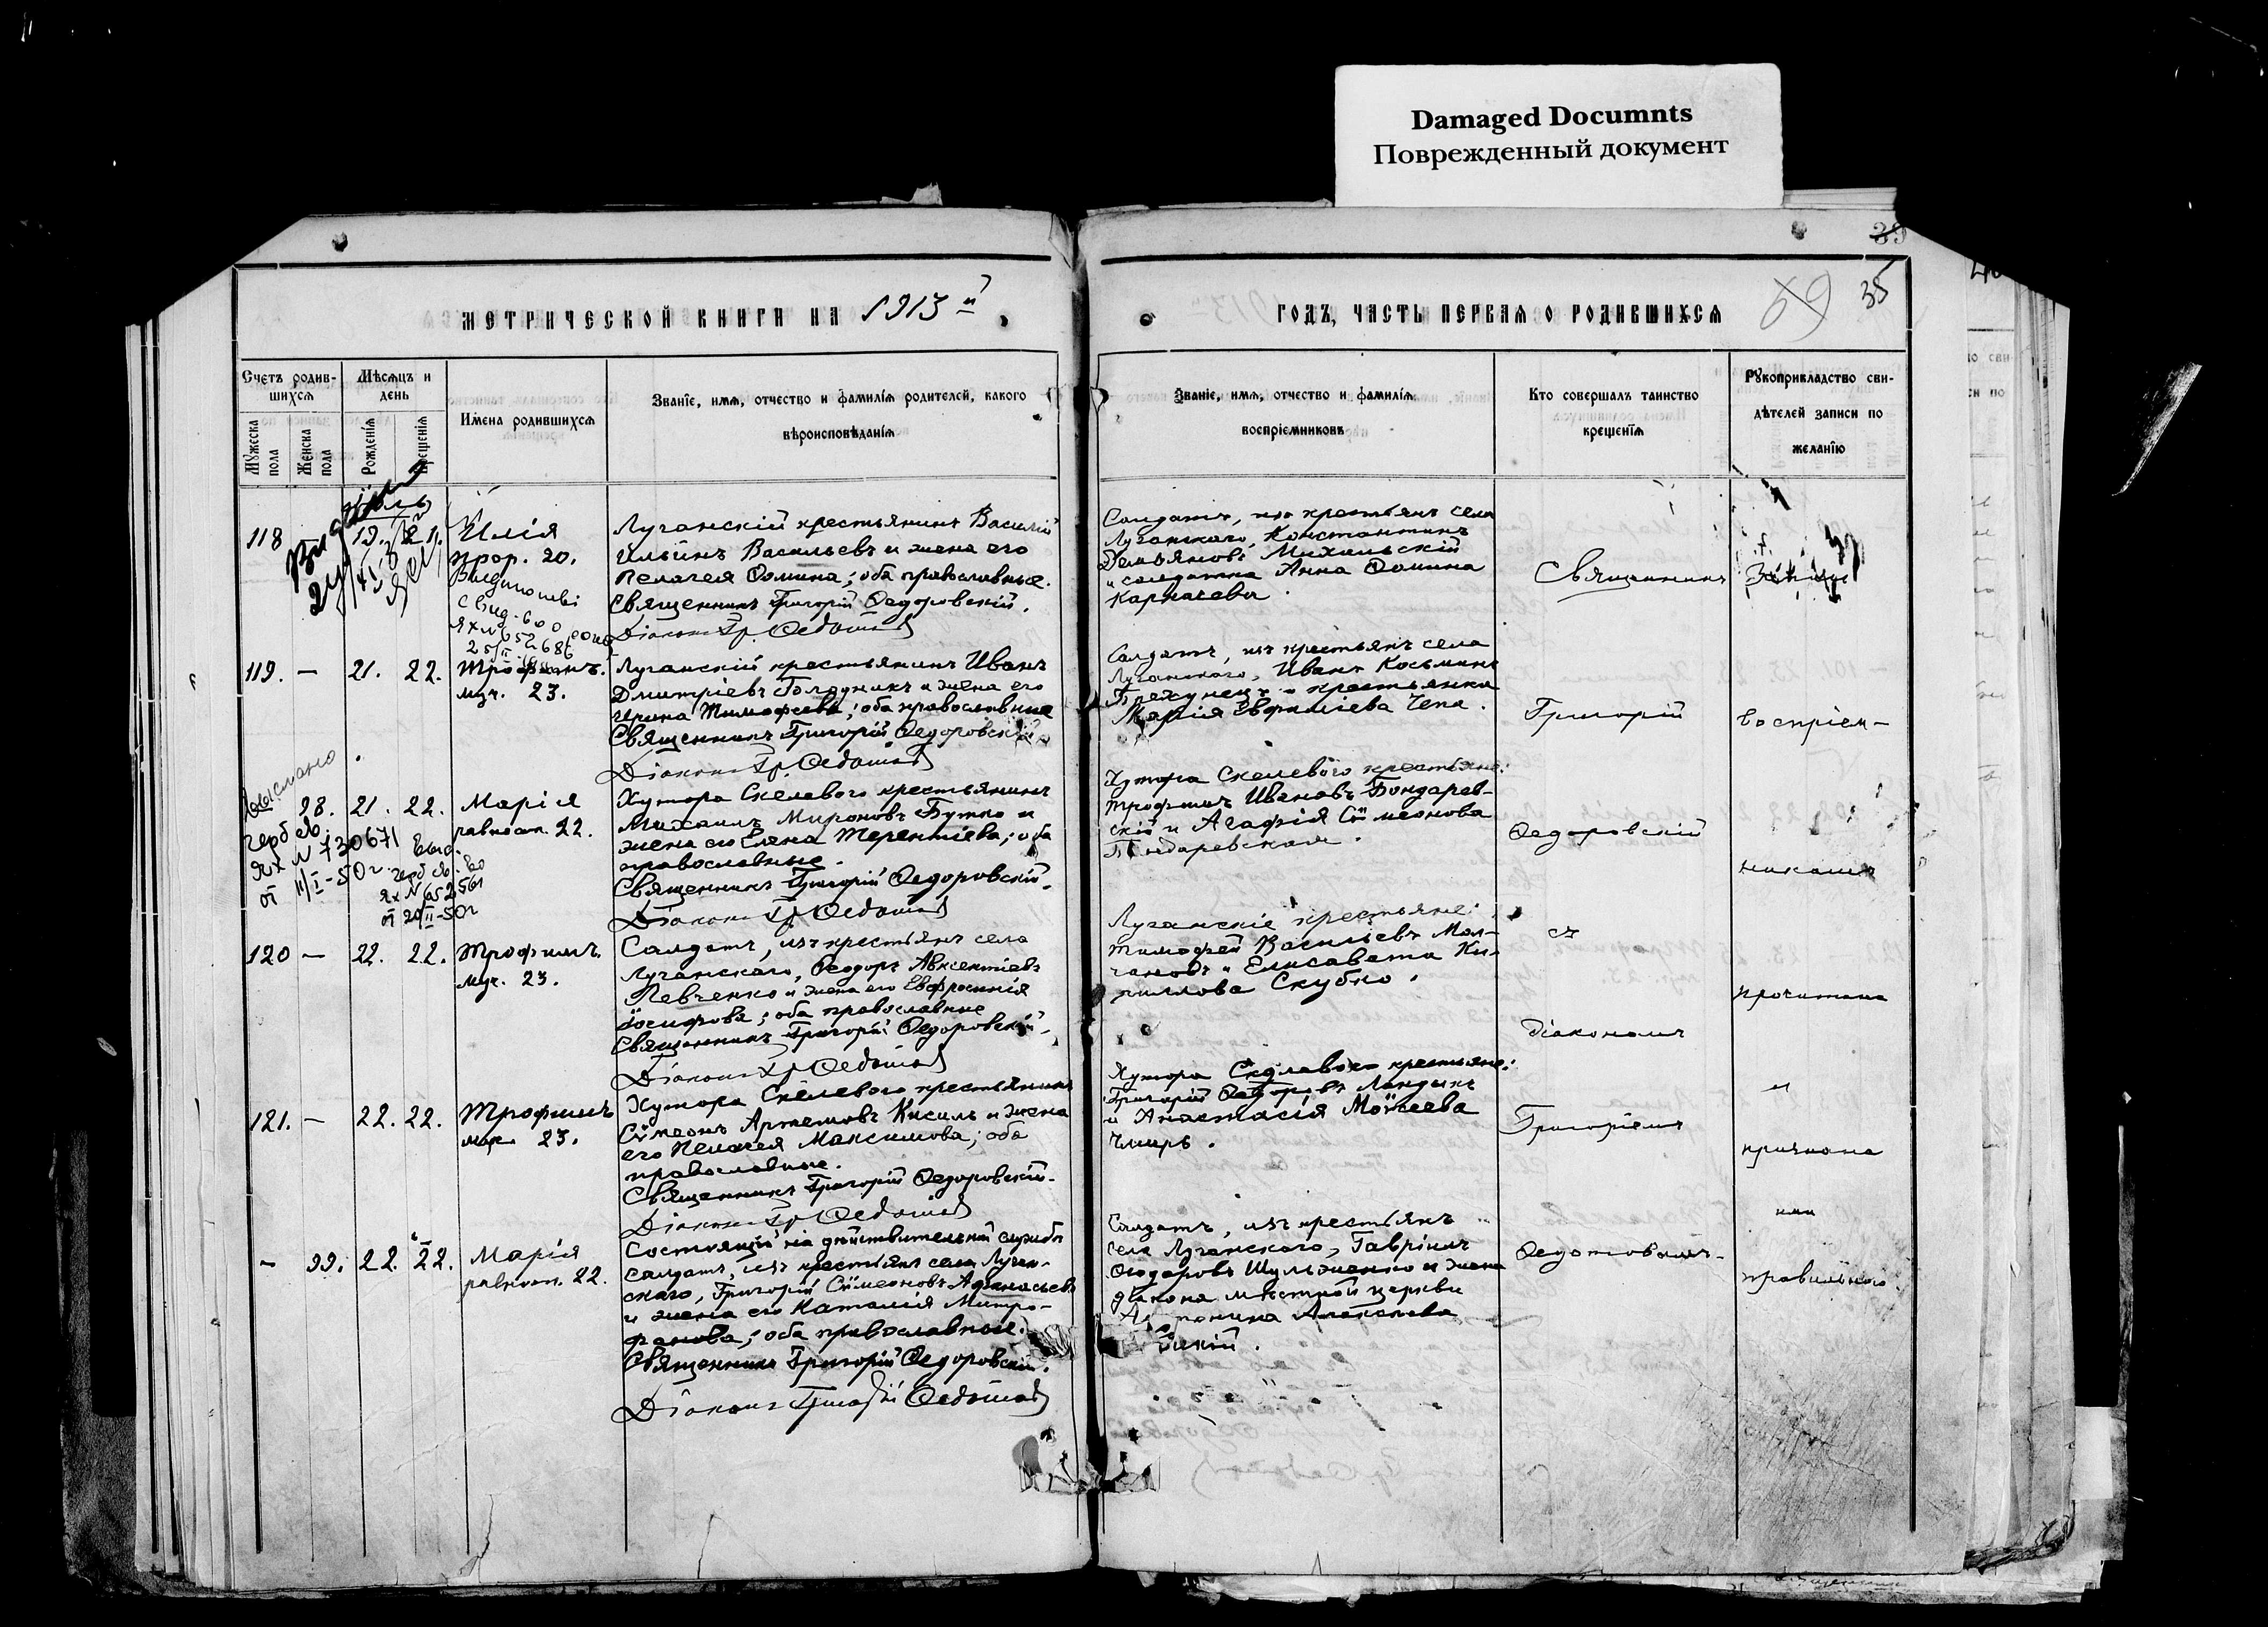 Damaged Documnts
Поврежденный документ
39
МЕТРИЧЕСКОЙ КНИГИ НА 1913 й
ГОДЪ, ЧАСТЬ ПЕРВАЯ О РОДИВШИХСЯ
69 35
Счетъ родив-
шихся
Мужеска пола
Женска пола
Мѣсяцъ и день
Рожденія
Крещенія
Имена родившихся
Званіе, имя, отчество и фамилія родителей, какого
вѣроисповѣданія
Званіе, имя, отчество и фамилія
воспріемниковъ
Кто совершалъ таинство
крещенія
Рукоприкладство сви-
дѣтелей записи по
желанію
Іюль
118 19. 21. Илія
прор. 20.
Луганскій крестьянинъ Василій
Ильинъ Васильевъ и жена его
Пелагея Ѳомина; оба православные.
Священникъ Григорій Ѳедоровскій.
Діаконъ Гр. Ѳедотов
Солдатъ, изъ крестьянъ села
Луганскаго, Константинъ
Демьяновъ Михальскій
и солдатка Анна Ѳомина
Карпачева.
119. — 21. 22.
муч. 23.
Луганскій крестьянинъ Иванъ
Дмитріевъ и жена его
Ирина Тимофеева; оба православные
Священникъ Григорій Ѳедоровскій
Діаконъ Гр. Ѳедотов
Солдатъ, изъ крестьянъ села
Луганскаго, Иванъ Косьминъ
Брехунецъ и крестьянка
Марія Евфиміева Чепа.
98. 21. 22. Марія
равноап. 22.
герб св.
ЯХ N 730671
от 11/I-50г.
герб св.
ЯХ N 652561
от 20/II-50г
Хутора Скелевого крестьянинъ
Михаилъ Мироновъ Бутко и
жена его Елена Терентіева; оба
православные.
Священникъ Григорій Ѳедоровскій.
Діаконъ Гр. Ѳедотов
Хутора Скелевого крестьяне:
Трофимъ Ивановъ Бондарев-
скій и Агафія Сѵмеонова
Бондаревская.
120 — 22. 22. Трофимъ
муч. 23.
Солдатъ, изъ крестьянъ села
Луганскаго, Ѳеодоръ Авксентіевъ
Левченко и жена его Евфросинія
Іосифова; оба православные
Священникъ Григорій Ѳедоровскій.
Діаконъ Гр Ѳедотов
Луганскіе крестьяне:
Тимофей Васильевъ Мол-
чановъ и Елисавета Ки-
риллова Скубко.
121. — 22. 22. Трофимъ
муч. 23.
Хутора Скелевого крестьянинъ
Сѵмеонъ Артемовъ Кисиль и жена
его Пелагея Максимова; оба
православные.
Священникъ Григорій Ѳедоровскій.
Діаконъ Гр Ѳедотов
Хутора Скелевого крестьяне:
Григорій Ѳедоровъ Ландикъ
и Анастасія Моѵсеева
Чмирь.
— 99. 22. 22. Марія
равноап. 22.
Состоящій на дѣйствительной службѣ
солдатъ, изъ крестьянъ села Луган-
скаго, Григорій Сѵмеоновъ Афанасьевъ
и жена его Наталія Митро-
фанова; оба православные.
Священникъ Григорій Ѳедоровскій.
Діаконъ Григорій Ѳедотов
Солдатъ, изъ крестьянъ
села Луганскаго, Гавріилъ
Ѳеодоровъ Шульженко и жена
діакона мѣстной церкви
Священникъ
Григорій
Ѳедоровскій
съ
діакономъ
Григоріемъ
Ѳедотовымъ.
воспріем-
никами
прочитана
и
признана
ими
правильною.